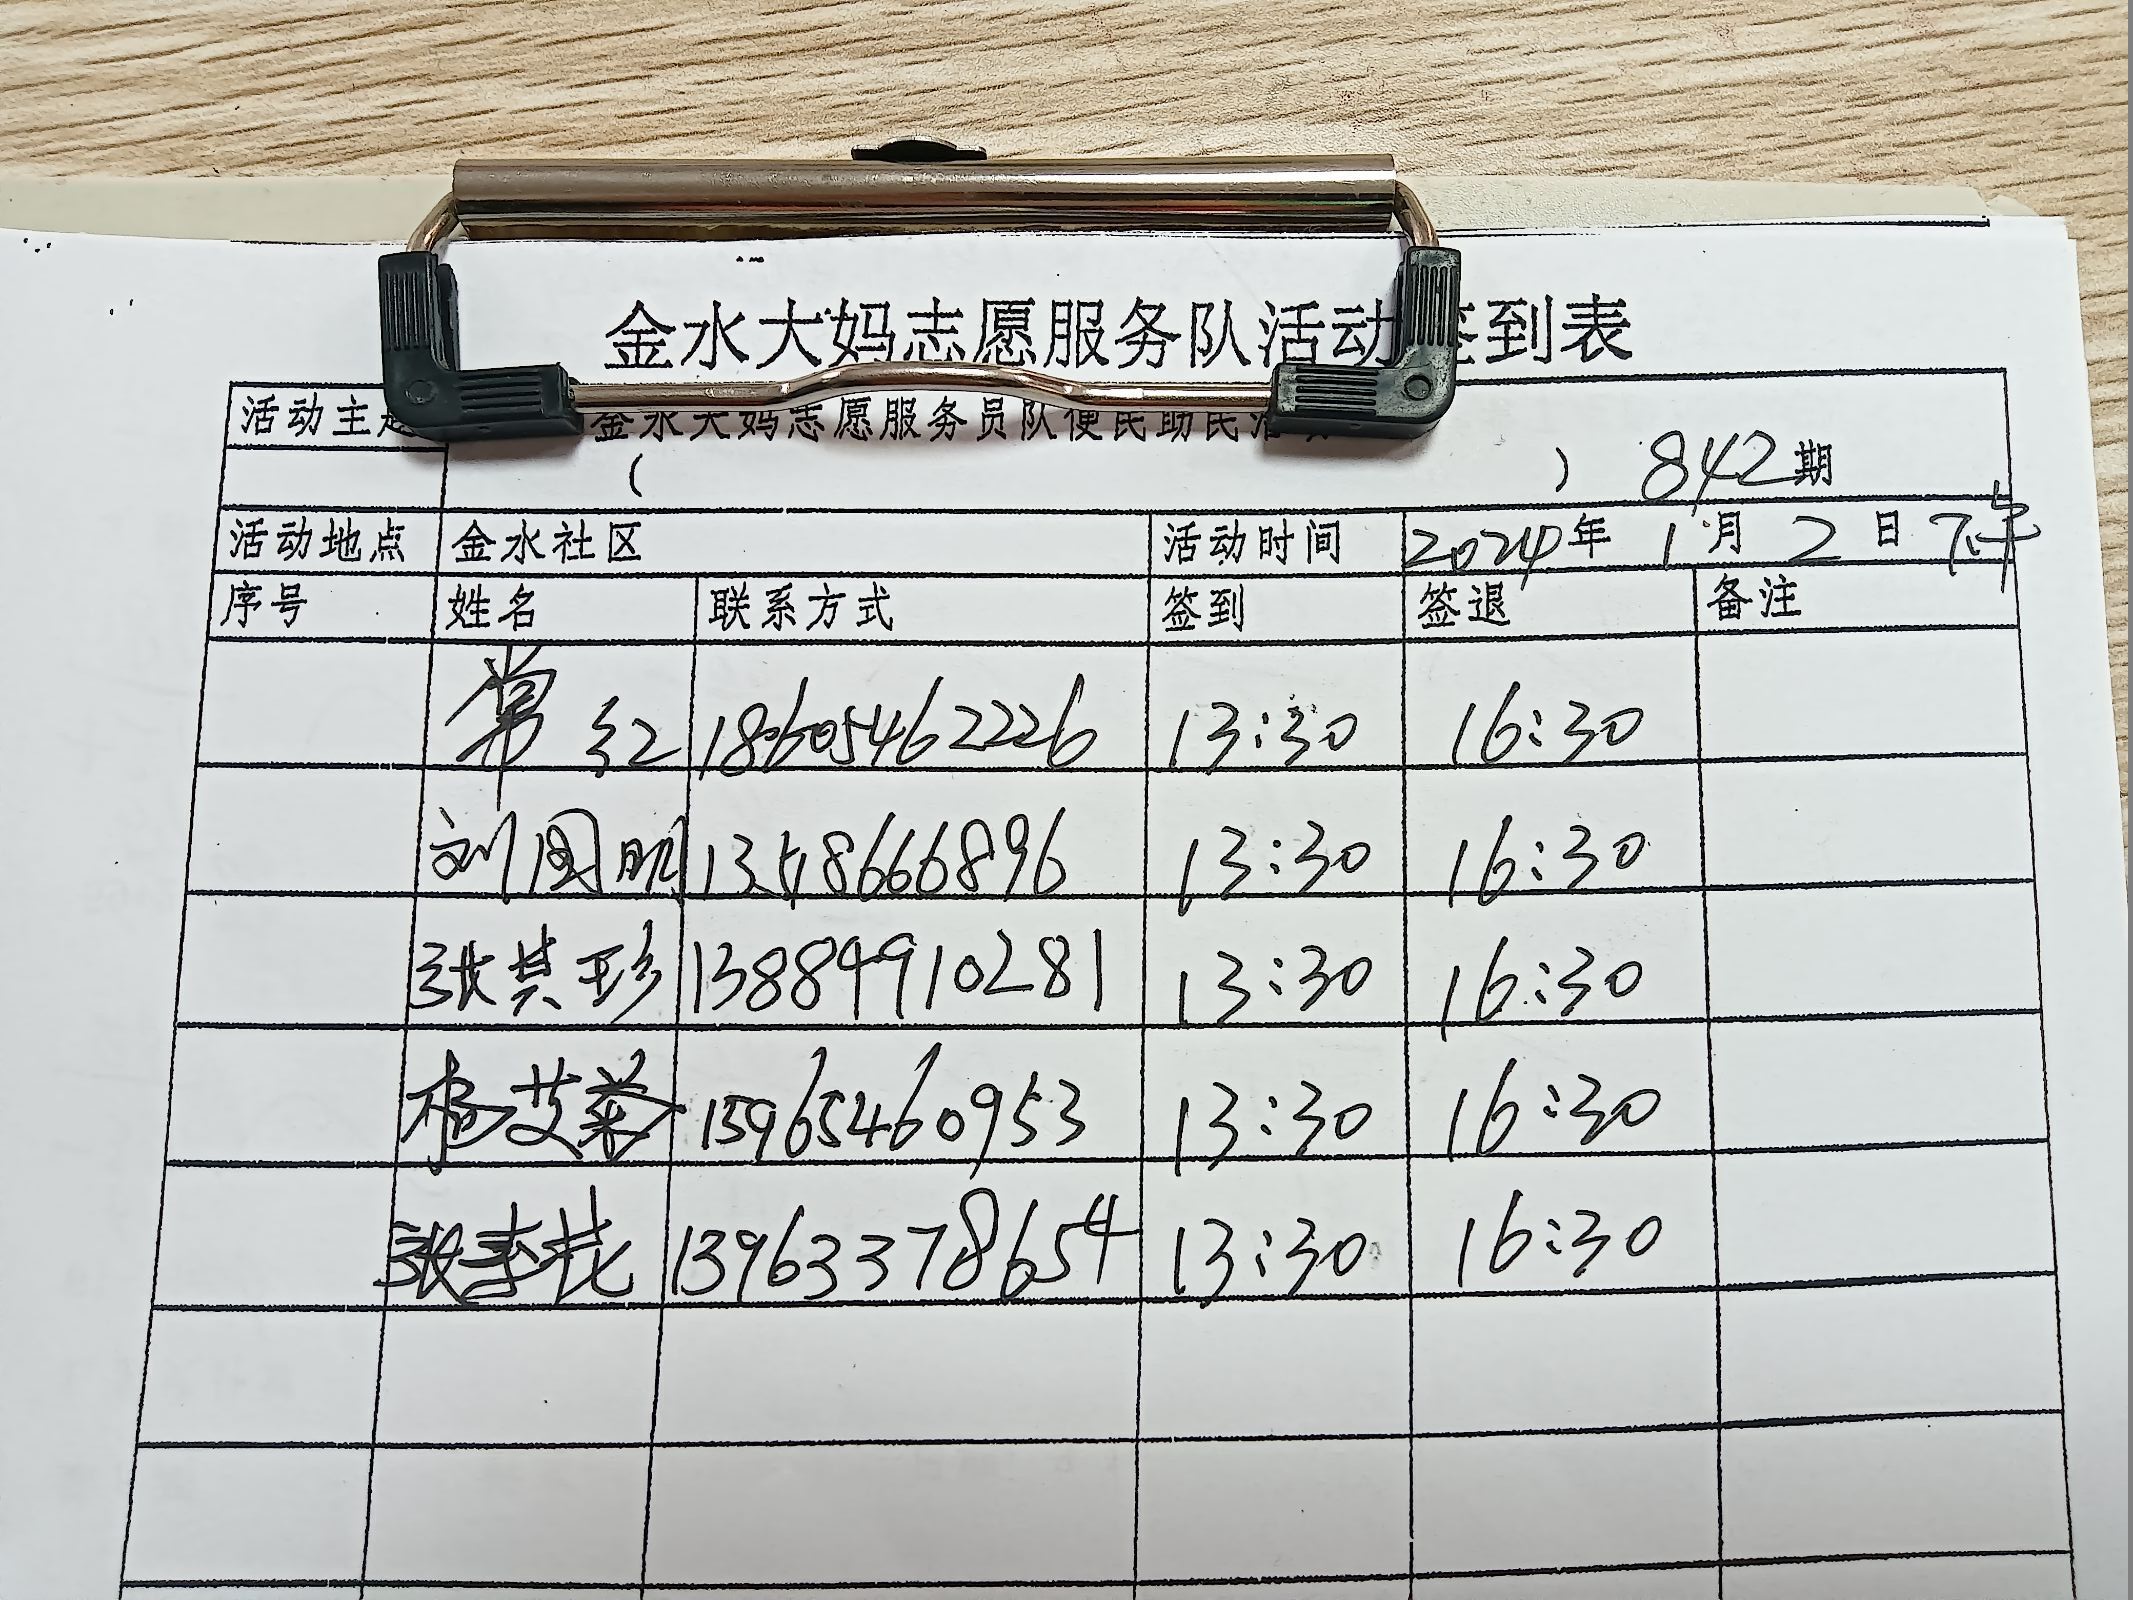 金水大妈志愿服务队活动签到表
活动主题 金水大妈志愿服务员队便民助民活动
( ) 842期
活动地点 金水社区 活动时间 2024年1月2日下午
序号 姓名 联系方式 签到 签退 备注
常红 18605462226 13:30 16:30
刘国明 13:30 16:30
张其珍 13884910281 13:30 16:30
杨艾荣 15965460953 13:30 16:30
张季花 13963378654 13:30 16:30